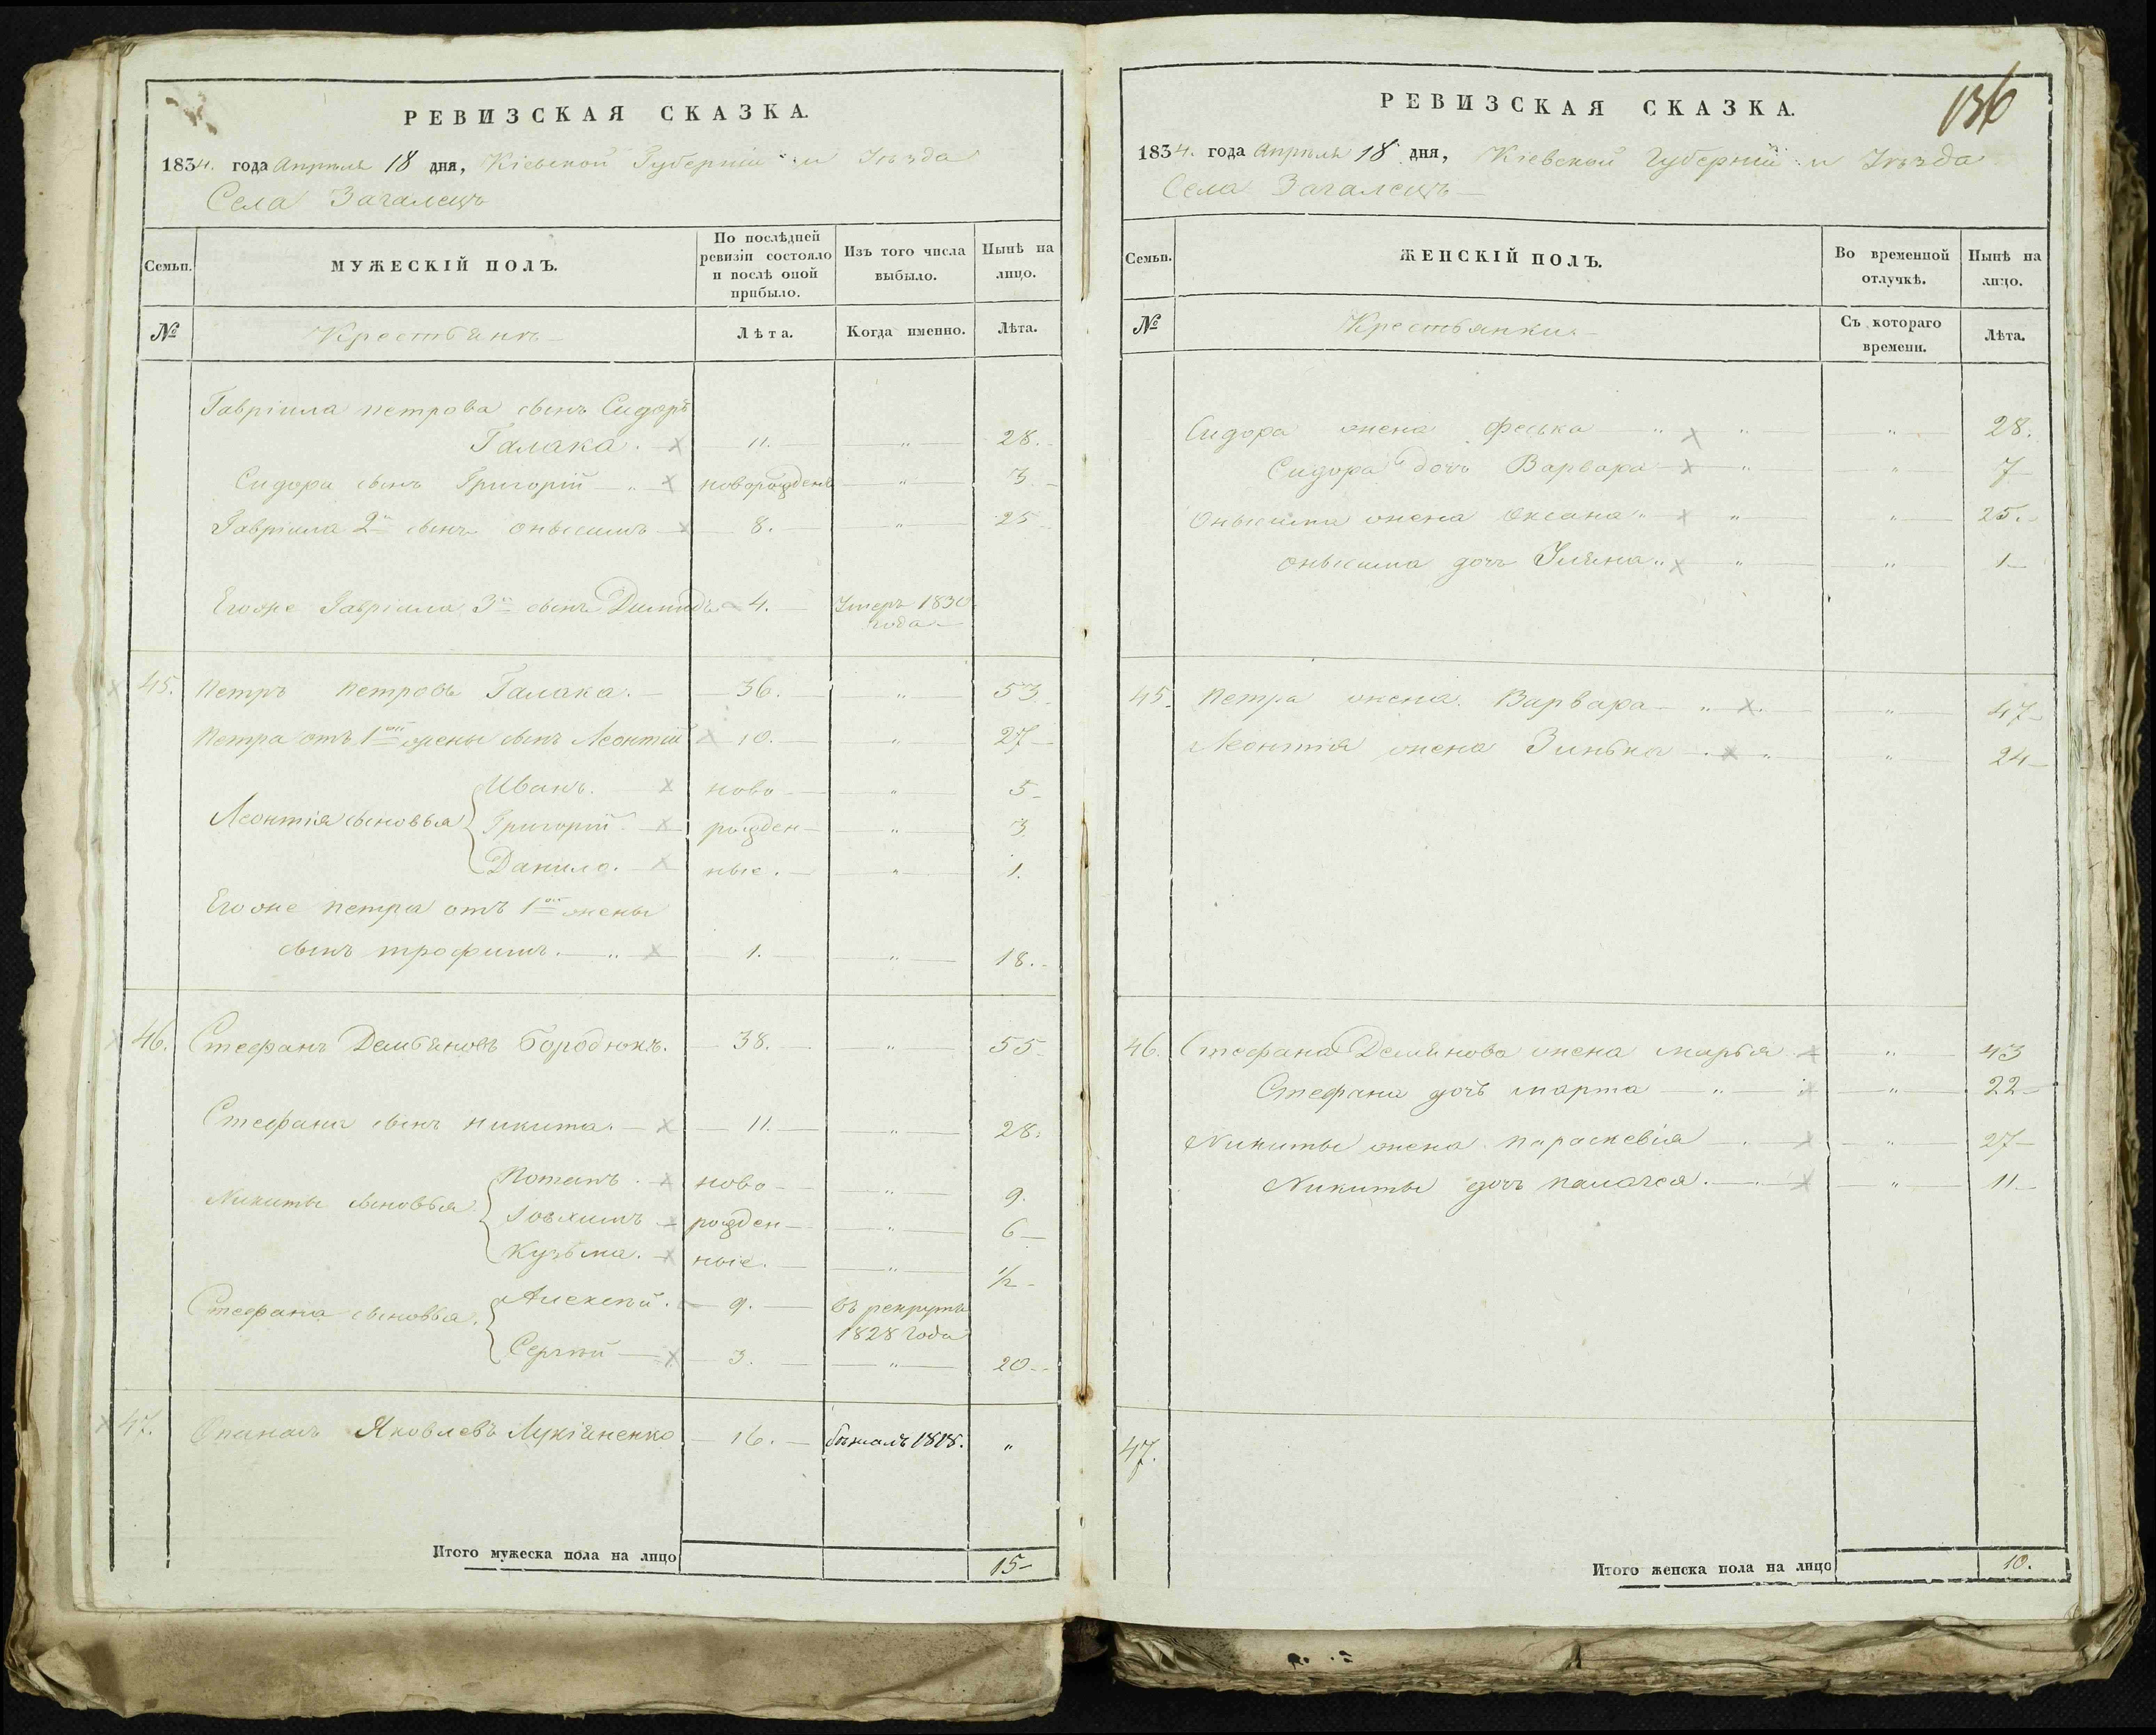 РЕВИЗСКАЯ СКАЗКА.
1834. года Апрѣля 18 дня, Кіевской Губерніи и Уѣзда
Села Загалецъ
Семьи.
МУЖЕСКІЙ ПОЛЪ.
По послѣдней ревизіи состояло и послѣ оной прибыло.
Изъ того числа выбыло.
Нынѣ на лицо.
№
Крестьянъ
Лѣта.
Когда именно.
Лѣта.
Гавріила петрова сынъ Сидоръ
Галака. 11. " 28.
Сидора сынъ Григорій " новорожденъ " 3
Гавріила 2й сынъ онысимъ 8. " 25
Егоже Гавріила 3й сынъ Димидъ 4. Умеръ 1830
года
45. Петръ Петровъ Галака. 36. " 53
Петра отъ 1ой жены сынъ Леонтій 10. " 27
Иванъ. ново " 5
Леонтія сыновья Григорій рожден " 3
Данило. ные. " 1.
Егоже петра отъ 1ой жены
сынъ трофимъ. " 1. " 18.
46. Стефанъ Демьяновъ Бородюкъ. 38. " 55
Стефана сынъ никита. 11. " 28.
Потапъ. ново " 9.
Никиты сыновья Іовхимъ рожден " 6
Кузьма. ные. " 1/2
Стефана сыновья Алексѣй. 9. въ рекруты
1828 года
Сергѣй 3. " 20
47. Опанасъ Яковлевъ Лукіяненко 16. бѣжалъ 1818. "
Итого мужеска пола на лицо 15
136
РЕВИЗСКАЯ СКАЗКА.
1834. года Апрѣля 18 дня, Кіевской Губерніи и Уѣзда
Села Загалецъ
Семьи.
ЖЕНСКІЙ ПОЛЪ.
Во временной отлучкѣ.
Нынѣ на лицо.
№
Крестьянки
Съ котораго времени.
Лѣта.
Сидора жена Феська " " " 28.
Сидора дочь Варвара " " 7
Онысима жена Оксана " " " 25.
онысима дочь Уляна " " " 1
45. Петра жена Варвара " " 47
Леонтія жена Зинька " " 24
46. Стефана Демянова жена марья " 43
Стефана дочь марта " " 22
Никиты жена параскевія " 27
Никиты дочь палагея. " 11
47.
Итого женска пола на лицо 10.